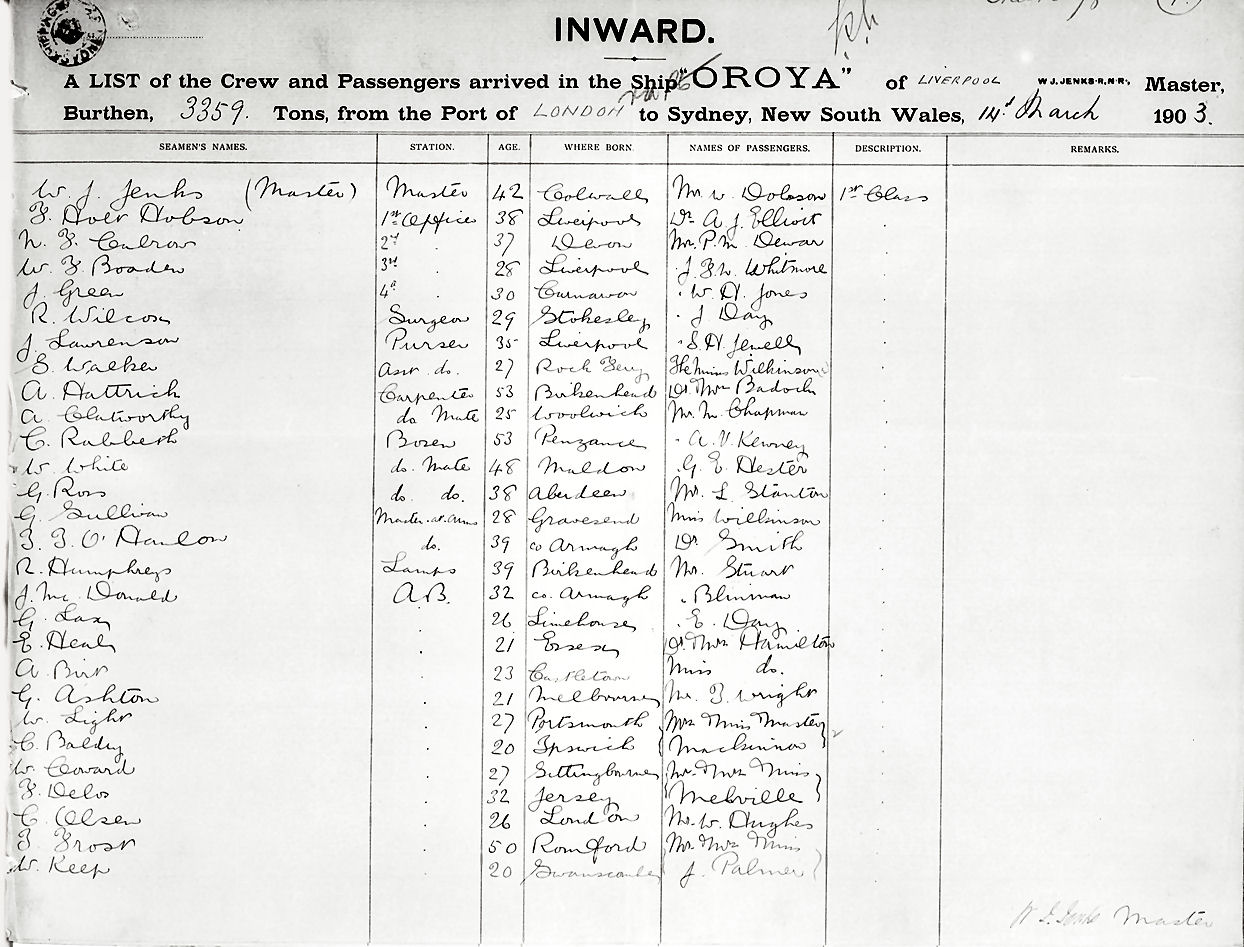 INWARD.
A LIST of the Crew and Passengers arrived in the Ship "OROYA" of LIVERPOOL W.J.JENKS.R.N.R., Master,
Burthen, 3359. Tons, from the Port of LONDON to Sydney, New South Wales, 14th March 1903.
SEAMEN'S NAMES. STATION. AGE. WHERE BORN. NAMES OF PASSENGERS. DESCRIPTION. REMARKS.
W. J. Jenks (Master) Master 42 Colwall Mr. W. Dobson 1st Class
F. Holt Hobson 1st Officer 38 Liverpool Dr. A. J. Elliott
N. F. Calrow 2nd 37 Devon Mr. P. M. Dewar
W. F. Boaden 3rd 28 Liverpool J. F. W. Whitmore
J. Green 4th 30 Carnarvon W. H. Jones
R. Wilcox Surgeon 29 Stokesley J. Day
J. Lawrenson Purser 35 Liverpool S. H. Jewell
S. Walker Asst. do. 27 Rock Ferry The Misses Wilkinson
A. Hattrick Carpenter 53 Birkenhead Dr. Mrs Badock
A. Clatworthy do Mate 25 Woolwich Mr. M. Chapman
C. Rabbeth Bosen 53 Penzance A. V. Kewney
W. White do. Mate 48 Maldon G. E. Hester
G. Ross do. do. 38 Aberdeen Mr. L. Stanton
G. Sullivan Master-at-Arms 28 Gravesend Miss Wilkinson
O'Hanlon do. 39 co Armagh Dr. Smith
R. Humphreys Lamps 39 Birkenhead Mr. Stuart
J. Mc Donald A.B. 32 co. Armagh Blinman
G. Lax 26 Limehouse E. Day
E. Heal 21 Essex Dr. Mrs Hamilton
A. Birt 23 Castletown Miss do.
G. Ashton 21 Melbourne Mr. T. Wright
W. Light 27 Portsmouth Mrs Miss Master
C. Baldry 20 Ipswich Mackinnon 2
W. Coward 27 Sittingbourne Mr. Mrs Miss
F. Delos 32 Jersey Melville
C. Olsen 26 London Mr. W. Hughes
Frost 50 Romford Mr. Mrs Miss
W. Keep 20 Swanscombe J. Palmer
W. J. Jenks Master